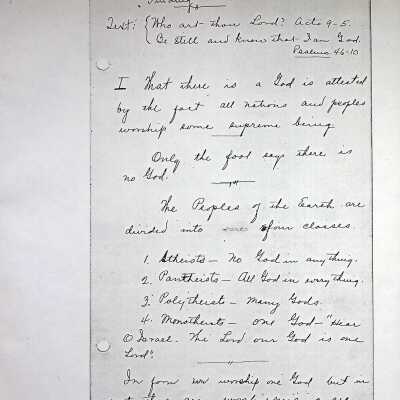 Text: { Who art thou Lord? Acts 9-5.
Be still and know that I am God.
Psalms 46-10
I That there is a God is attested
by the fact all nations and peoples
worship some supreme being
Only the fool says there is
no God.
The Peoples of the Earth are
divided into four classes.
1. Atheists - No God in anything.
2. Pantheists - All God in everything.
3. Polytheist - Many Gods.
4. Monotheists - One God - "Hear
O Israel. The Lord our God is one
Lord".
In form we worship one God but in